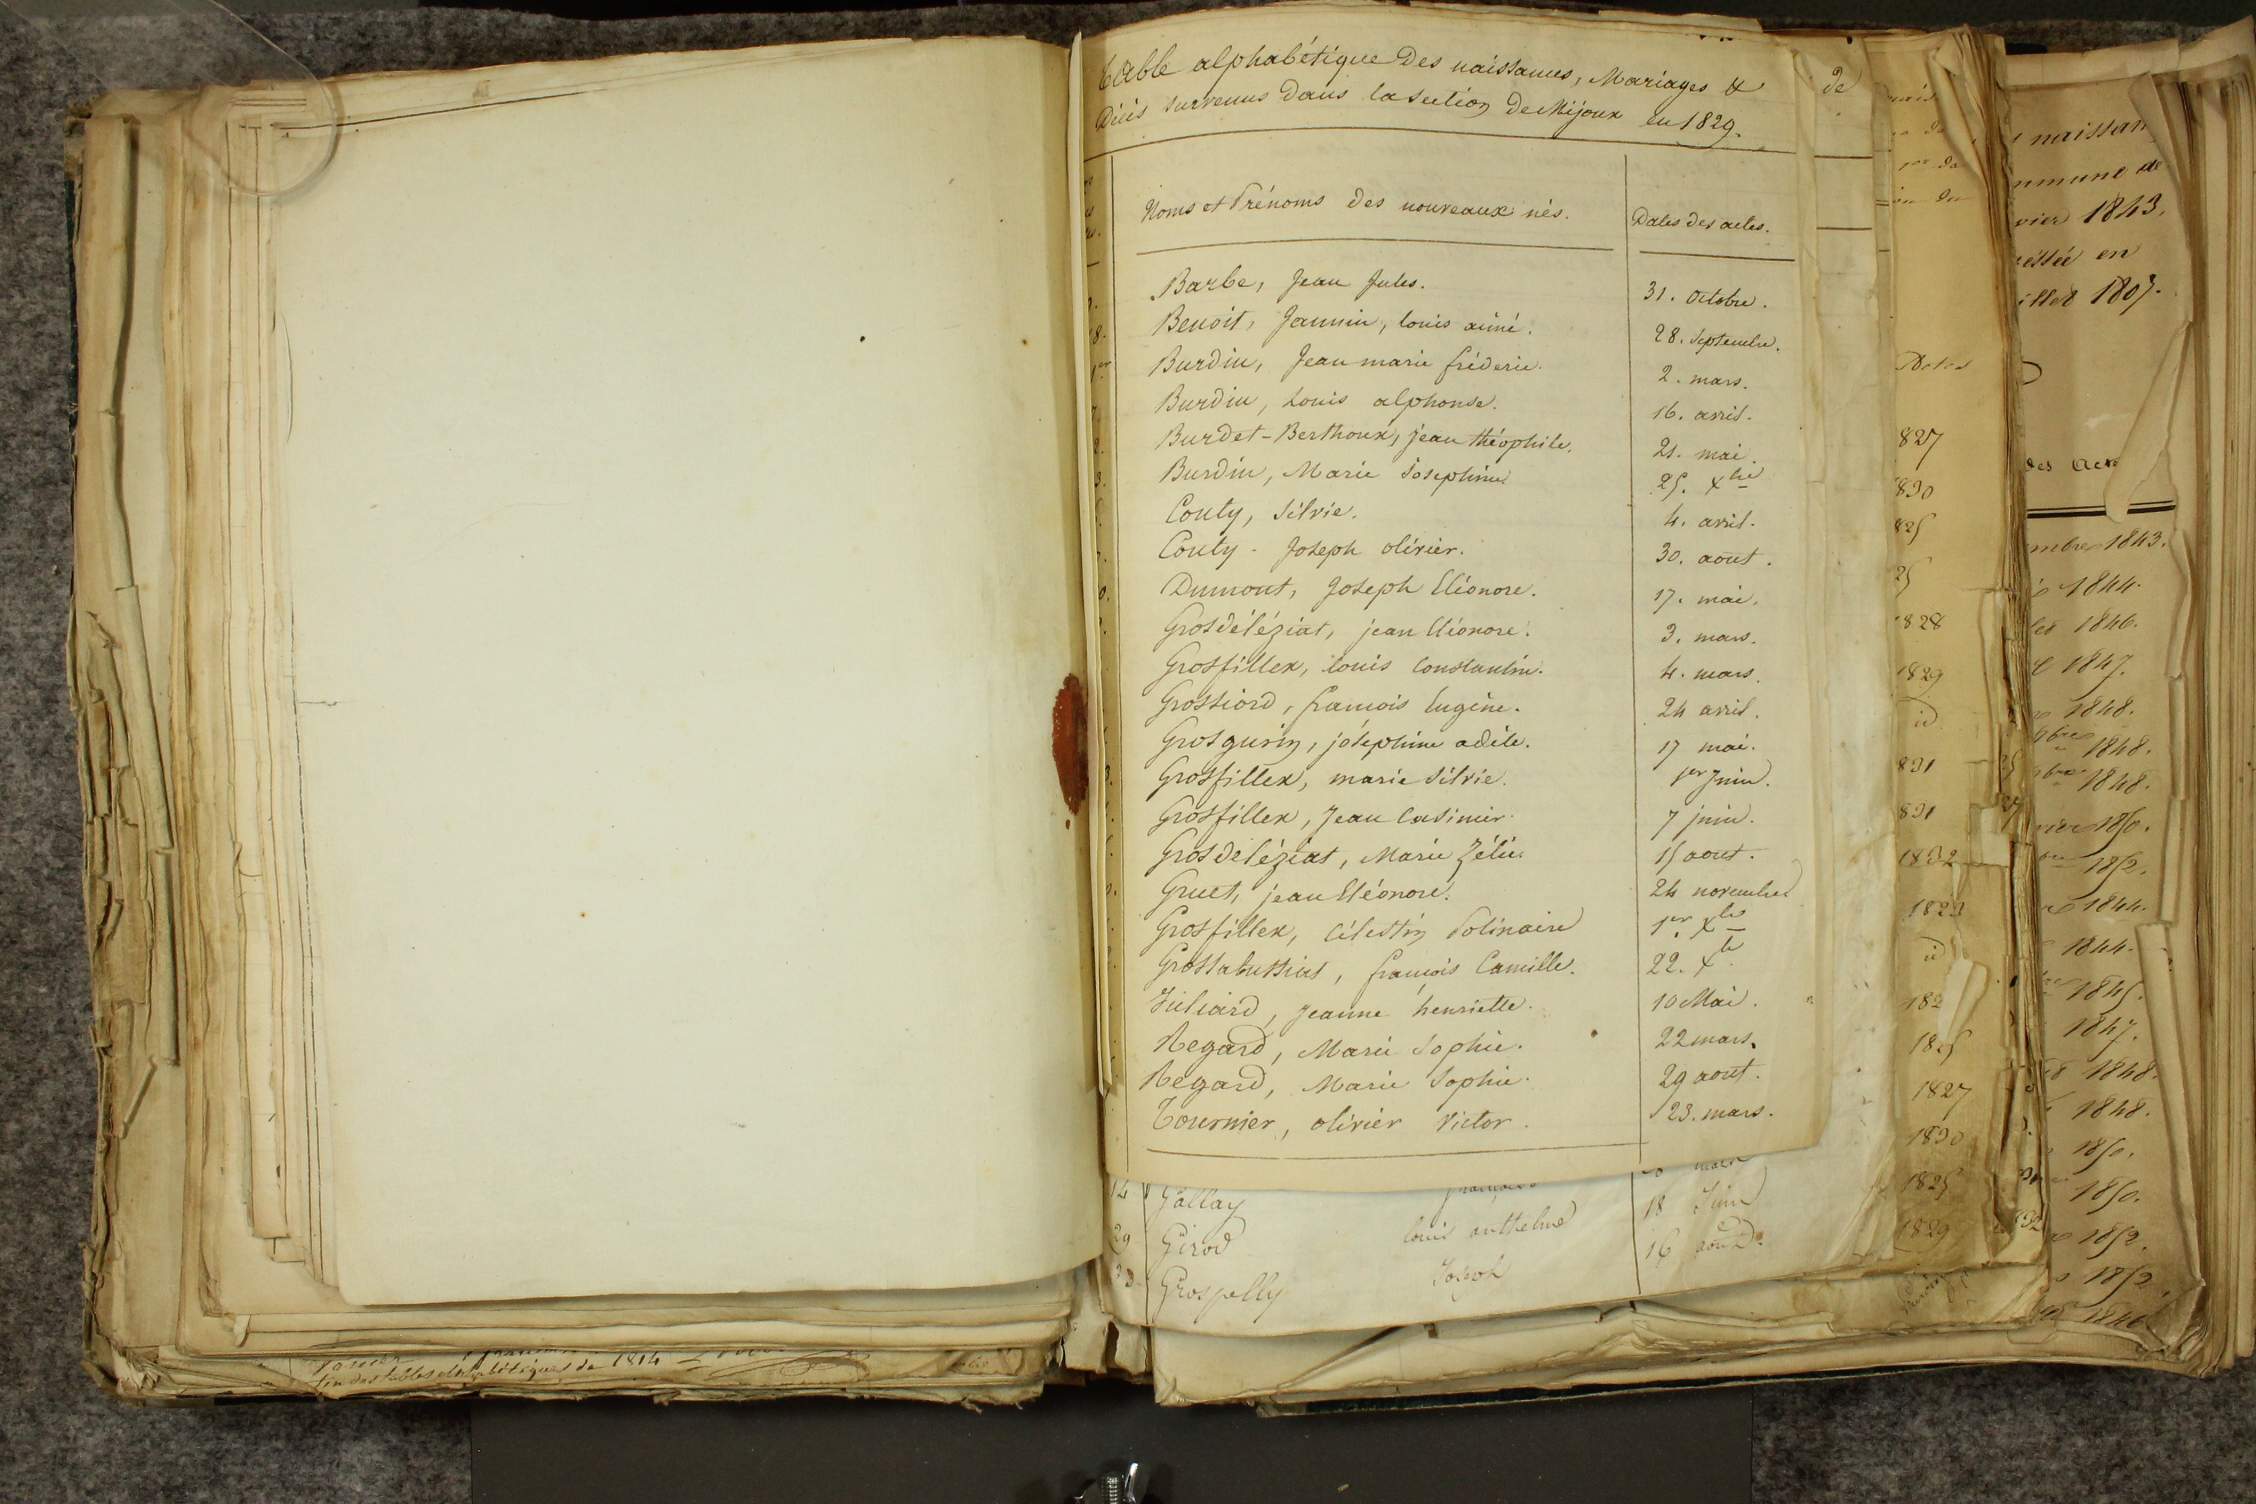 Table alphabétique Des naissances, Mariages &
Décès survenus dans la section De Mijoux en 1829.
Noms et Prénoms des nouveaux nés. Dates des actes.
Barbe, Jean Jules. 31. Octobre.
Benoit, Jannin, louis aimé. 28. Septembre.
Burdin, Jean marie fréderic. 2. mars.
Burdin, Louis alphonse. 16. avril.
Burdet-Berthoux, jean théophile. 21. mai.
Burdin, Marie Josephine 25. xbre
Couty, Silvie. 4. avril.
Couty - Joseph olivier. 30. aout.
Dumont, Joseph Eléonore. 17. mai.
Grosdéléziat, jean Eléonore. 3. mars.
Grosfillex, louis Constantin. 4. mars.
Grossiord, francois Eugène. 24 avril.
Grosgurin, joséphine adèle. 17 mai.
Grosfillex, marie Silvie. 1er Juin.
Grosfillex, Jean Casimir. 7 juin.
Grosdeléziat, Marie Zélie. 15 aout.
Gruet, jean Eléonore. 24 novembre
Grosfillex, Célestin Polinaire 1er. xbre
Grossabussiat, françois Camille. 22. xbre
Juliard, Jeanne henriette. 10 Mai.
Regard, Marie Sophie. 22 mars.
Regard, Marie Sophie. 29 aout.
Tournier, olivier Victor. 23. mars.
14 Gallay
29 Girod louis anthelme 18 Juin
Grospelly Joseph 16 août
fin des tables alphabétiques de 1814
de
Dates
827
830
825
25
1828
1829
id
831
831
1832
1823
id
182
1825
1827
1830
1825
1829
naissan
ommune de
vier 1843.
en
1807.
des Act
mbre 1843.
1844.
1846.
1847.
1848.
9bre 1848.
9bre 1848.
vier 1850.
1852.
1844.
1844.
1845.
1847.
1848.
1848.
1850.
1850.
1852.
1852.
1846